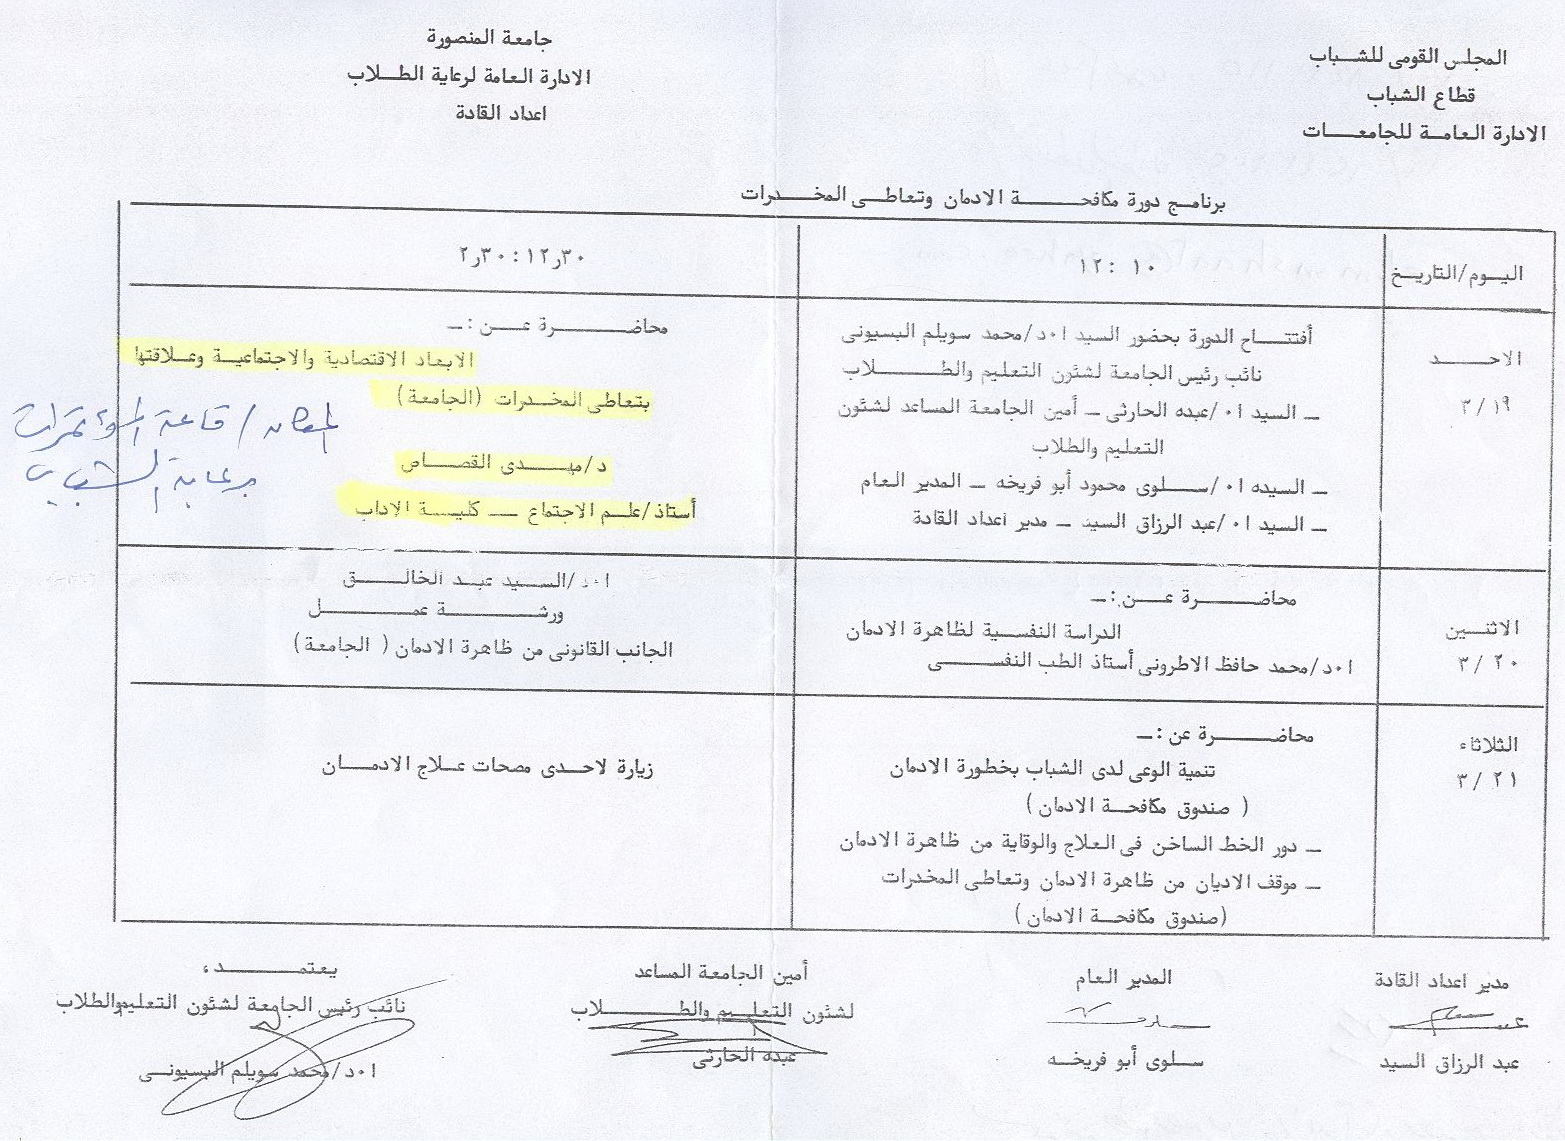 المجلس القومى للشباب
قطاع الشباب
الادارة العامة للجامعات
جامعة المنصورة
الادارة العامة لرعاية الطلاب
اعداد القادة
برنامج دورة مكافحة الادمان وتعاطى المخدرات
اليوم/التاريخ
١٠ : ١٢
٣٠ر١٢ : ٣٠ر٢
الاحد
٣/١٩
أفتتاح الدورة بحضور السيد ا٠د/محمد سويلم البسيونى
نائب رئيس الجامعة لشئون التعليم والطلاب
_ السيد ا٠/عبده الحارثى _ أمين الجامعة المساعد لشئون
التعليم والطلاب
_ السيده ا٠/سلوى محمود أبو فريخه _ المدير العام
_ السيد ا٠/عبد الرزاق السيد _ مدير اعداد القادة
محاضرة عن :_
الابعاد الاقتصادية والاجتماعية وعلاقتها
بتعاطى المخدرات (الجامعة)
د/مهدى القصاص
أستاذ/علم الاجتماع _ كلية الاداب
المكان / قاعة المؤتمرات
برعاية الشباب
الاثنين
٣/٢٠
محاضرة عن :_
الدراسة النفسية لظاهرة الادمان
ا٠د/محمد حافظ الاطرونى أستاذ الطب النفسى
ا٠د/السيد عبد الخالق
ورشة عمل
الجانب القانونى من ظاهرة الادمان ( الجامعة)
الثلاثاء
٣/٢١
محاضرة عن :_
تنمية الوعى لدى الشباب بخطورة الادمان
( صندوق مكافحة الادمان )
_ دور الخط الساخن فى العلاج والوقاية من ظاهرة الادمان
_ موقف الاديان من ظاهرة الادمان وتعاطى المخدرات
(صندوق مكافحة الادمان )
زيارة لاحدى مصحات علاج الادمان
مدير اعداد القادة
عبد الرزاق السيد
المدير العام
سلوى أبو فريخه
أمين الجامعة المساعد
لشئون التعليم والطلاب
عبده الحارثى
يعتمد،
نائب رئيس الجامعة لشئون التعليم والطلاب
ا٠د/محمد سويلم البسيونى